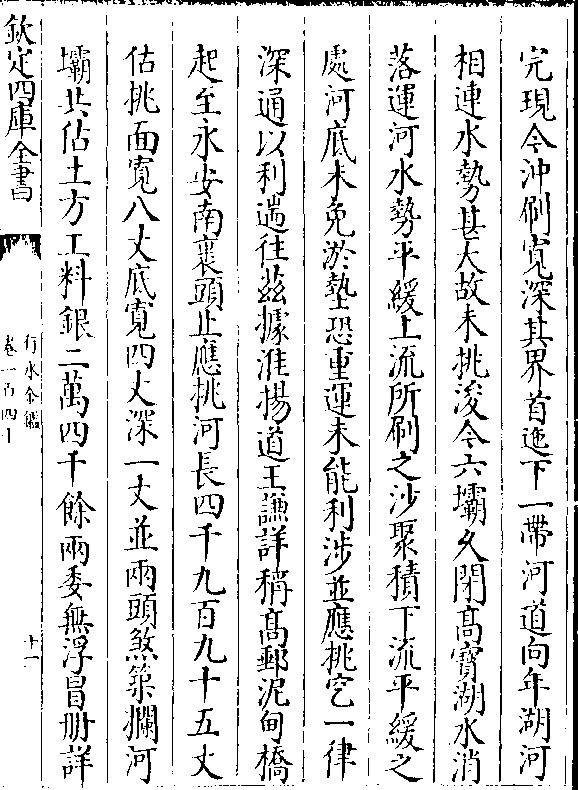 完現今沖刷寬深其界首迤下一帶河道向年湖河
相連水勢甚大故未挑浚今六壩久閉髙寳湖水消
落運河水勢平緩上流所刷之沙聚積下流平緩之
處河底未免淤墊恐重運未能利涉並應挑穵一律
深通以利遄往兹據淮揚道王謙詳稱髙郵泥甸橋
起至永安南裏頭止應挑河長四千九百九十五丈
估挑面寛八丈底寛四丈深一丈並兩頭煞築攔河
壩共估土方工料銀二萬四千餘兩委無浮冒册詳
欽定四庫全書
行水金鑑
卷一百四十
十一